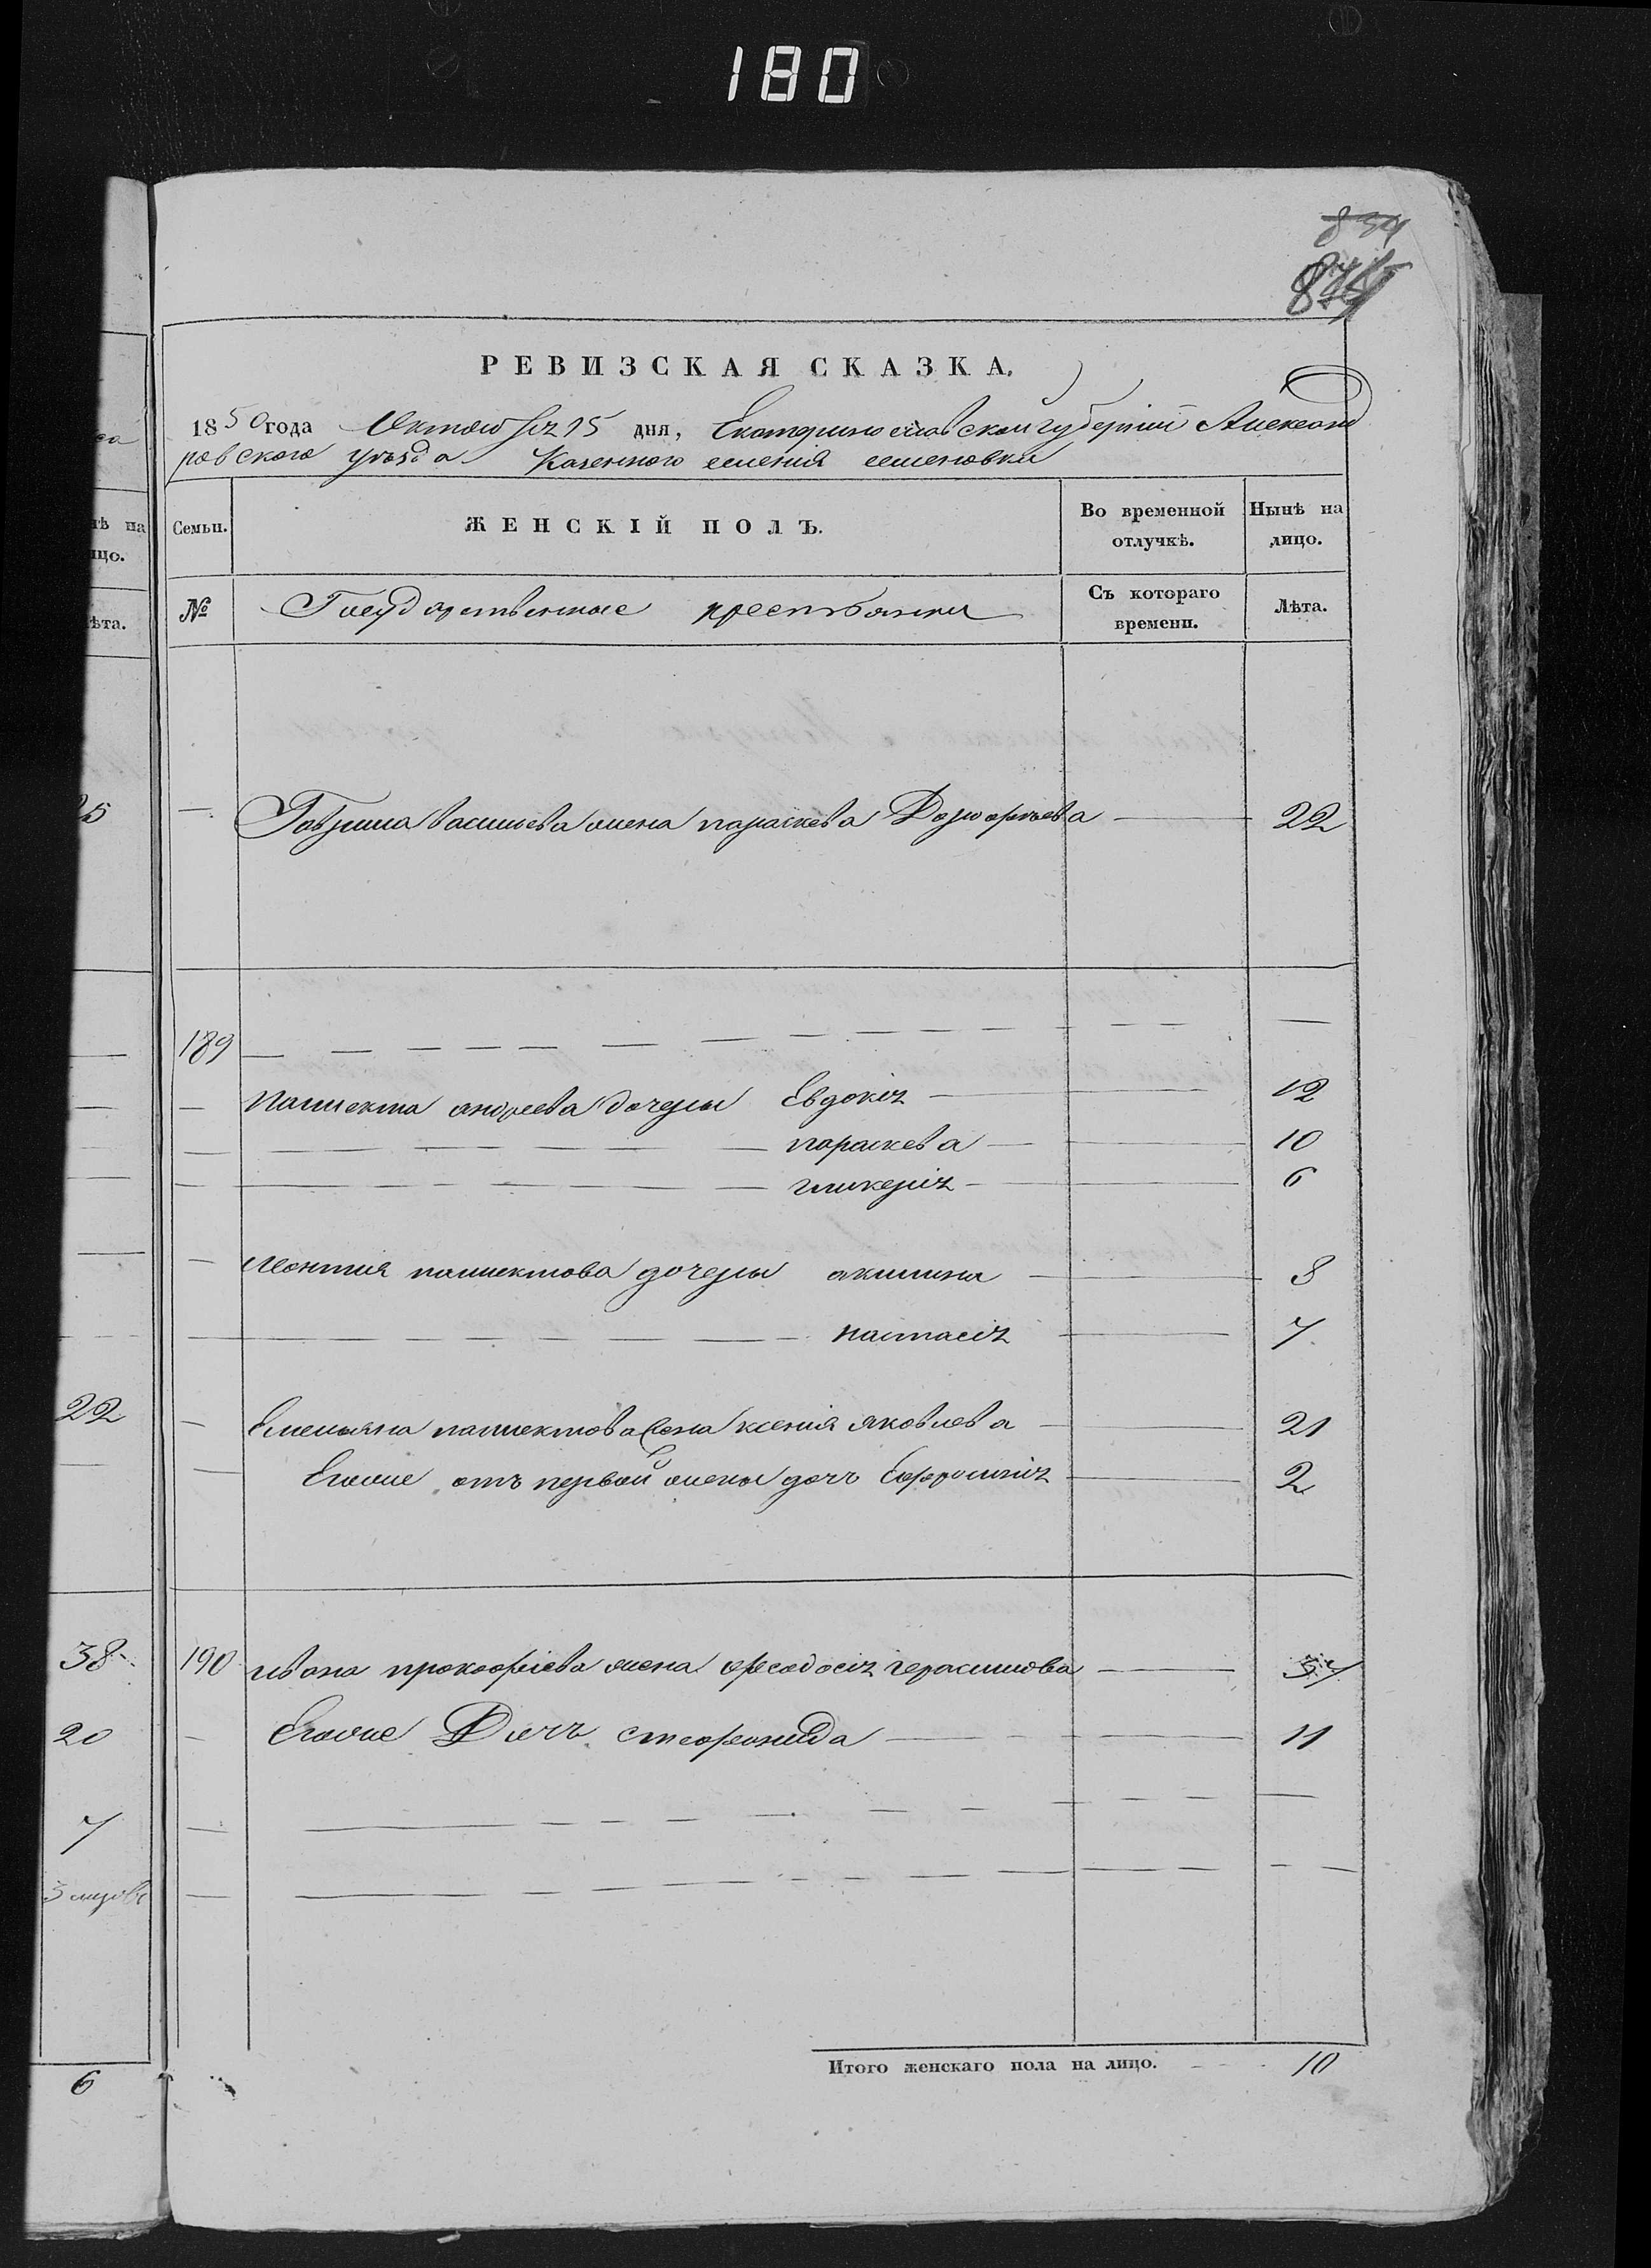 180
834
РЕВИЗСКАЯ СКАЗКА.
1850 года Октября 15 дня, Екатеринославской губерніи Александ
ровского уѣзда Казенного селенія семеновки
Семьи.
ЖЕНСКІЙ ПОЛЪ.
Во временной отлучкѣ.
Нынѣ на лицо.
№
Государственные крестьянки
Съ котораго времени.
Лѣта.
— Гаврила васильева жена параскева — 22
189 — — — — — — — — — —
— полиекта андреева дочери Евдокія — 12
— — — — — — параскева — 10
— — — — — — гликерія — 6
— леонтия полиектова дочери акилина — 8
— — — — — — настасія — 7
— Емельяна полиектова жена ксенія яковлева — 21
— Егоже отъ первой жены дочь Ефросинія — 2
190 ивана прокофіева жена феодосія герасимова — 37
— Егоже Дочь степонида — 11
— — — — — — — — — —
— — — — — — — — — —
Итого женскаго пола на лицо. — 10
нѣ на
ицо.
ѣта.
25
22
38
20
7
6